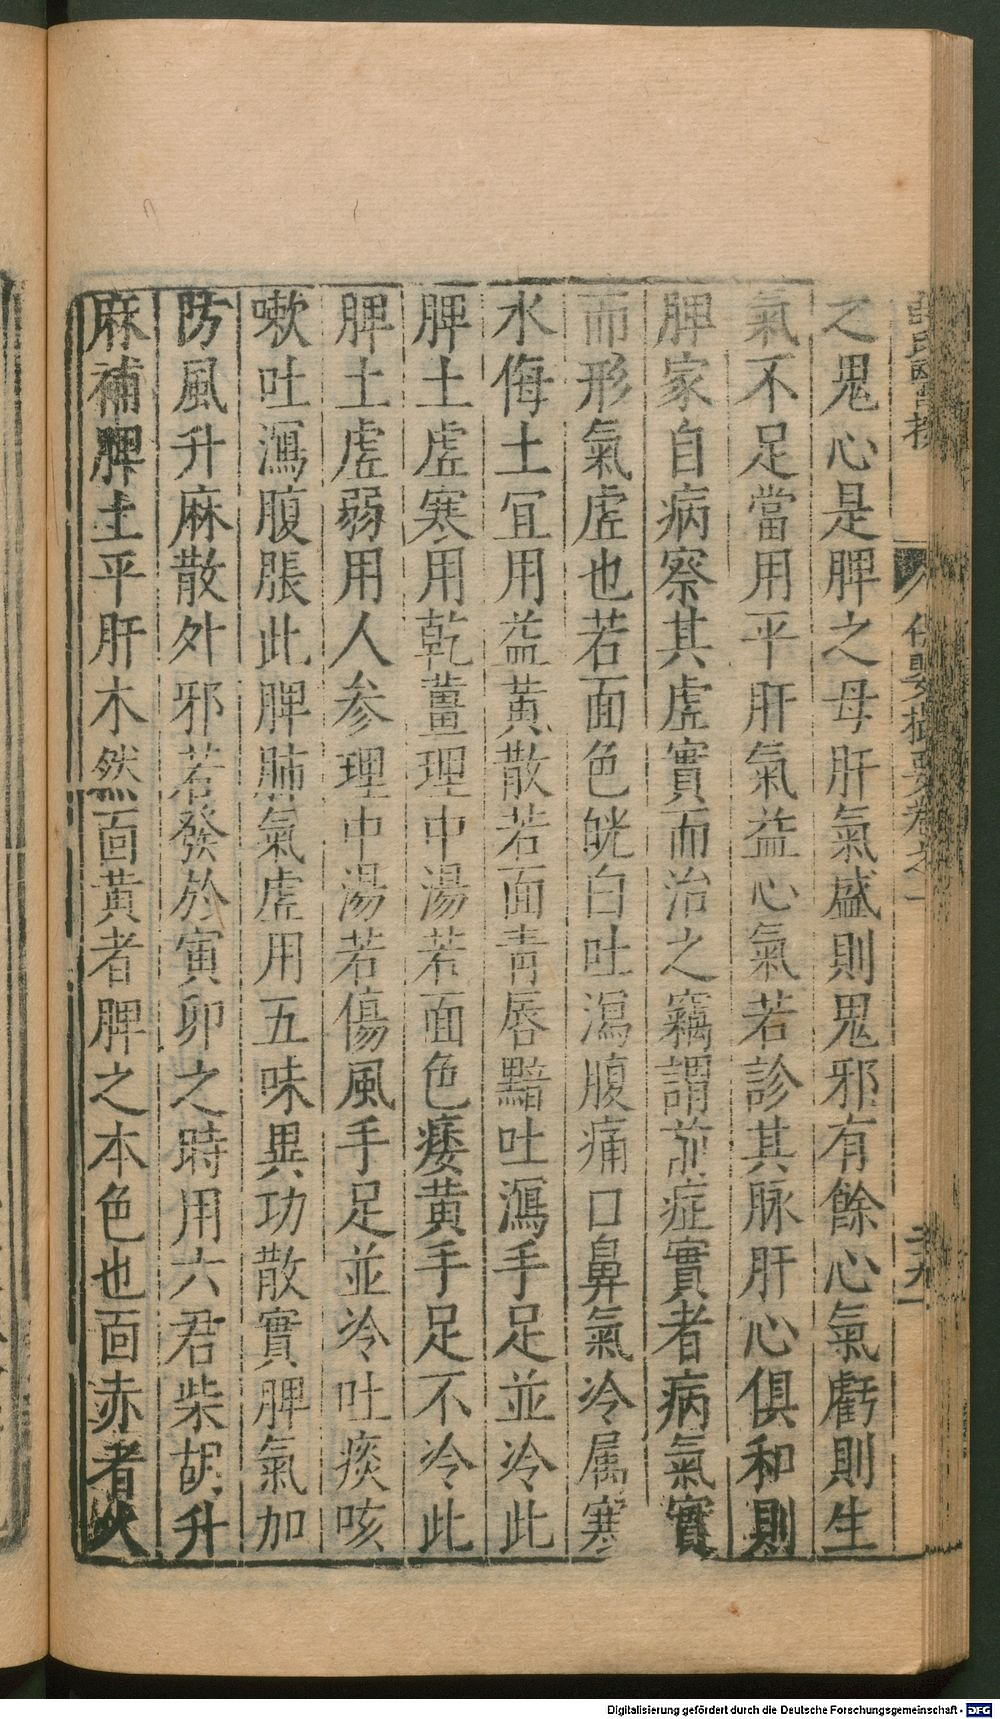 薛氏醫按 保嬰撮要卷之一
之鬼心是脾之母肝氣盛則鬼邪有餘心氣虧則生
氣不足當用平肝氣益心氣若診其脉肝心俱和則
脾家自病察其虛實而治之竊謂前症實者病氣實
而形氣虛也若面色㿠白吐瀉腹痛口鼻氣冷属寒
水侮土宜用益黃散若面青唇黯吐瀉手足並冷此
脾土虛寒用乾薑理中湯若面色痿黃手足不冷此
脾土虛弱用人参理中湯若傷風手足並冷吐痰咳
嗽吐瀉腹脹此脾肺氣虛用五味異功散實脾氣加
防風升麻散外邪若發於寅卯之時用六君柴胡升
麻補脾土平肝木然面黃者脾之本色也面赤者火
Digitalisierung gefördert durch die Deutsche Forschungsgemeinschaft - DFG